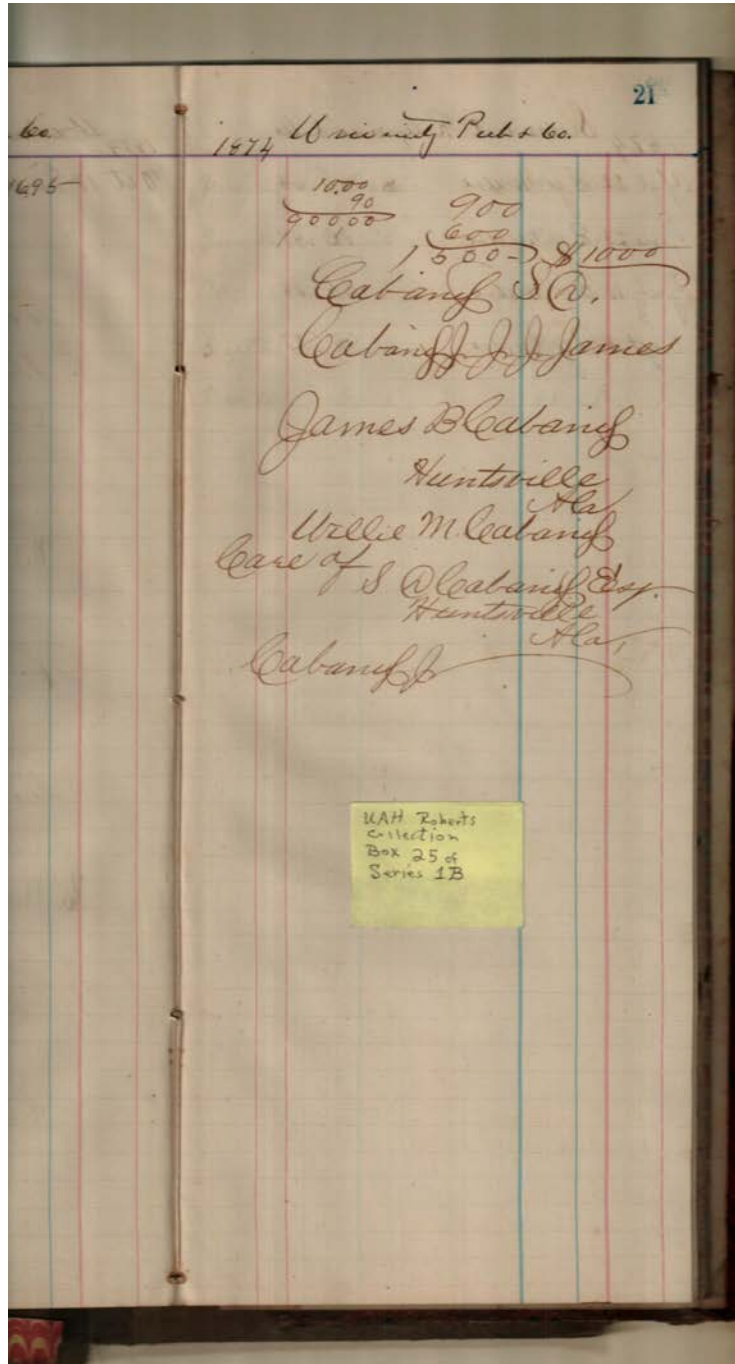 21
Co.
1874 University Pub & Co.
1695
10.00
90
900,00
900
600
1500- $1000
Cabaniss S D.
Cabaniss J. J. J. James
James B Cabaniss
Huntsville
Ala,
Willie M. Cabaniss
Care of
S D Cabaniss Esq.
Huntsville
Ala,
Cabaniss J
UAH Roberts
Collection
Box 25 of
Series 1B